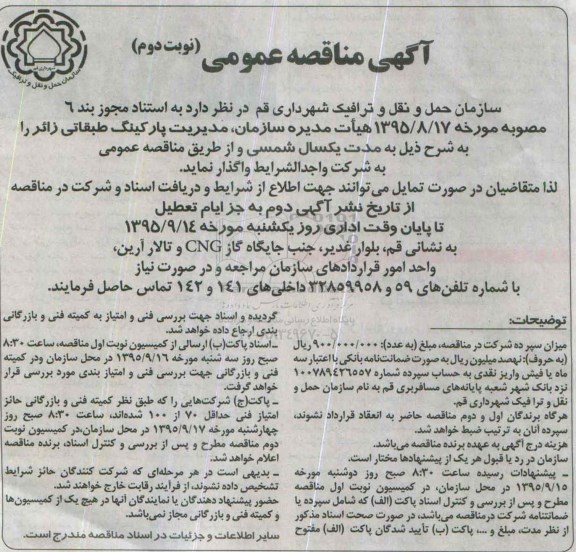 آگهی مناقصه عمومی (نوبت دوم)
سازمان حمل و نقل و ترافیک شهرداری قم در نظر دارد به استناد مجوز بند ۶
مصوبه مورخه ۱۳۹۵/۸/۱۷ هیأت مدیره سازمان، مدیریت پارکینگ طبقاتی زائر را
به شرح ذیل به مدت یکسال شمسی و از طریق مناقصه عمومی
به شرکت واجدالشرایط واگذار نماید.
لذا متقاضیان در صورت تمایل می‌توانند جهت اطلاع از شرایط و دریافت اسناد و شرکت در مناقصه
از تاریخ نشر آگهی دوم به جز ایام تعطیل
تا پایان وقت اداری روز یکشنبه مورخه ۱۳۹۵/۹/۱۴
به نشانی قم، بلوار غدیر، جنب جایگاه گاز CNG و تالار آرین،
واحد امور قراردادهای سازمان مراجعه و در صورت نیاز
با شماره تلفن‌های ۵۹ و ۳۲۸۵۹۹۵۸ داخلی‌های ۱۴۱ و ۱۴۲ تماس حاصل فرمایند.
توضیحات:
میزان سپرده شرکت در مناقصه، مبلغ (به عدد): ۹۰۰/۰۰۰/۰۰۰ ریال
(به حروف): نهصد میلیون ریال به صورت ضمانت‌نامه بانکی با اعتبار سه
ماه یا فیش واریز نقدی به حساب سپرده شماره ۱۰۰۷۸۹۴۲۶۵۵۷
نزد بانک شهر شعبه پایانه‌های مسافربری قم به نام سازمان حمل و
نقل و ترافیک شهرداری قم.
هرگاه برندگان اول و دوم مناقصه حاضر به انعقاد قرارداد نشوند،
سپرده آنان به ترتیب ضبط خواهد شد.
هزینه درج آگهی به عهده برنده مناقصه می‌باشد.
سازمان در رد یا قبول هر یک از پیشنهادها مختار است.
ـ پیشنهادات رسیده ساعت ۸:۳۰ صبح روز دوشنبه مورخه
۱۳۹۵/۹/۱۵ در محل سازمان، در کمیسیون نوبت اول مناقصه
مطرح و پس از بررسی و کنترل اسناد پاکت (الف) که شامل سپرده یا
ضمانتنامه شرکت در مناقصه می‌باشد، در صورت صحت اسناد مذکور
از نظر مدت، مبلغ و ....، پاکت (ب) تأیید شدگان پاکت (الف) مفتوح
گردیده و اسناد جهت بررسی فنی و امتیاز به کمیته فنی و بازرگانی
بندی ارجاع داده خواهد شد.
ـ اسناد پاکت (ب) ارسالی از کمیسیون نوبت اول مناقصه، ساعت ۸:۳۰
صبح روز سه شنبه مورخه ۱۳۹۵/۹/۱۶ در محل سازمان ودر کمیته
فنی و بازرگانی جهت بررسی فنی و امتیاز بندی مورد بررسی قرار
خواهد گرفت.
ـ پاکت(ج) شرکت‌هایی را که طبق نظر کمیته فنی و بازرگانی حائز
امتیاز فنی حداقل ۷۰ از ۱۰۰ شده‌اند، ساعت ۸:۳۰ صبح روز
چهارشنبه مورخه ۱۳۹۵/۹/۱۷ در محل سازمان،در کمیسیون نوبت
دوم مناقصه مطرح و پس از بررسی و کنترل اسناد، برنده مناقصه
اعلام خواهد شد.
ـ بدیهی است در هر مرحله‌ای که شرکت کنندگان حائز شرایط
تشخیص داده نشوند، از فرآیند رقابت خارج خواهند شد.
حضور پیشنهاد دهندگان یا نمایندگان آنها در هیچ یک از کمیسیون‌ها
و کمیته فنی و بازرگانی مجاز نمی‌باشد.
سایر اطلاعات و جزئیات در اسناد مناقصه مندرج است.